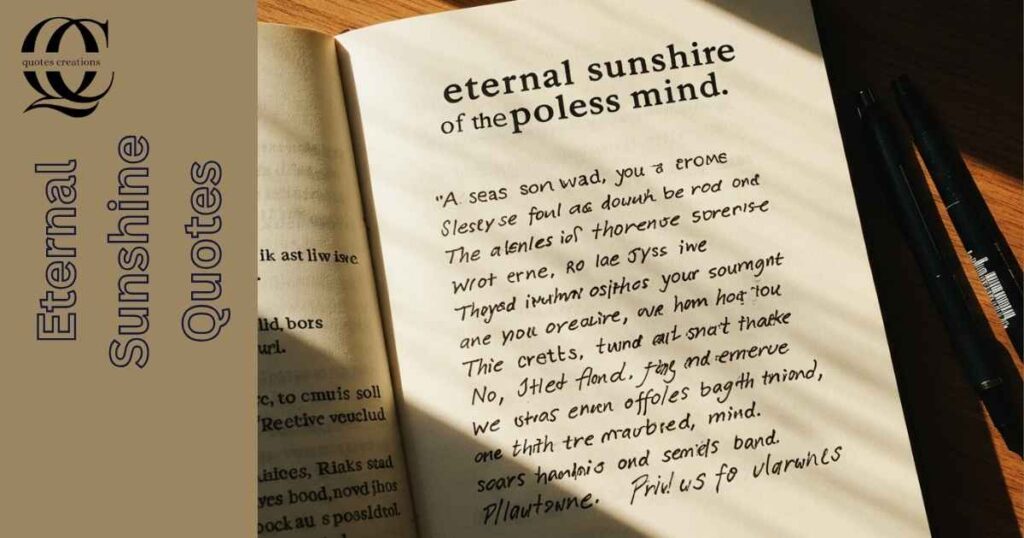 quotes creations
Eternal
Sunshine
Quotes
eternal sunshire
of the poless mind.
"A seas son wad, you a erome
Slesty se foul as douuh be rod ond
The alenles iof thorense sorense
Wrot erne, Ro lae Syss iwe
Thoysd osithos your soumgnt
ane you oreaire, ove hom hog You
Thie cretts, tund snat thaake
No, Itled flond. and emerve
we enuen offoles bagth tniond,
one thith tre maurbred, mind.
soars and semiels band.
Pllautowne. Privl us fo vlarwnes
ik ast liwise.
lld, bors
url.
c, to cmuis soll
Rective vouclud
hices, Riaks stad
yes bood, novd jhos
ock au s possldtol.